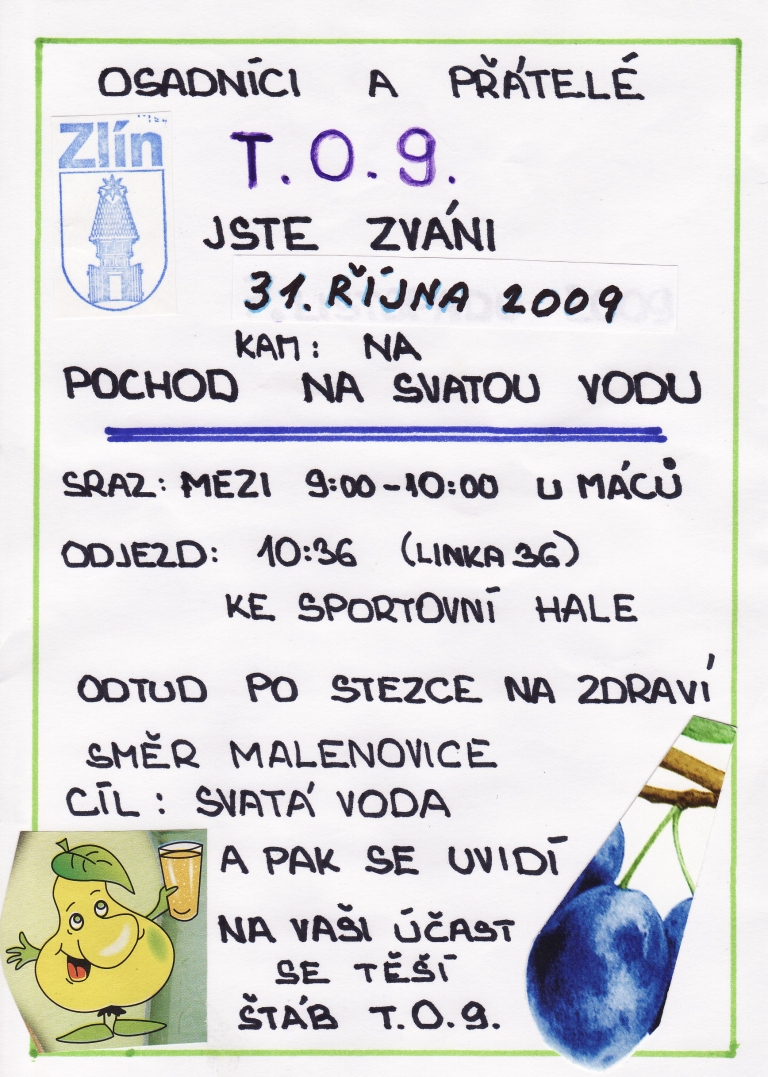 OSADNÍCI A PŘÁTELÉ
Zlín
T.O.9.
JSTE ZVÁNI
31. ŘÍJNA 2009
KAM: NA
POCHOD NA SVATOU VODU
SRAZ: MEZI 9:00-10:00 U MÁCŮ
ODJEZD: 10:36 (LINKA 36)
KE SPORTOVNÍ HALE
ODTUD PO STEZCE NA ZDRAVÍ
SMĚR MALENOVICE
CÍL: SVATÁ VODA
A PAK SE UVIDÍ
NA VAŠI ÚČAST
SE TĚŠÍ
ŠTÁB T.O.9.